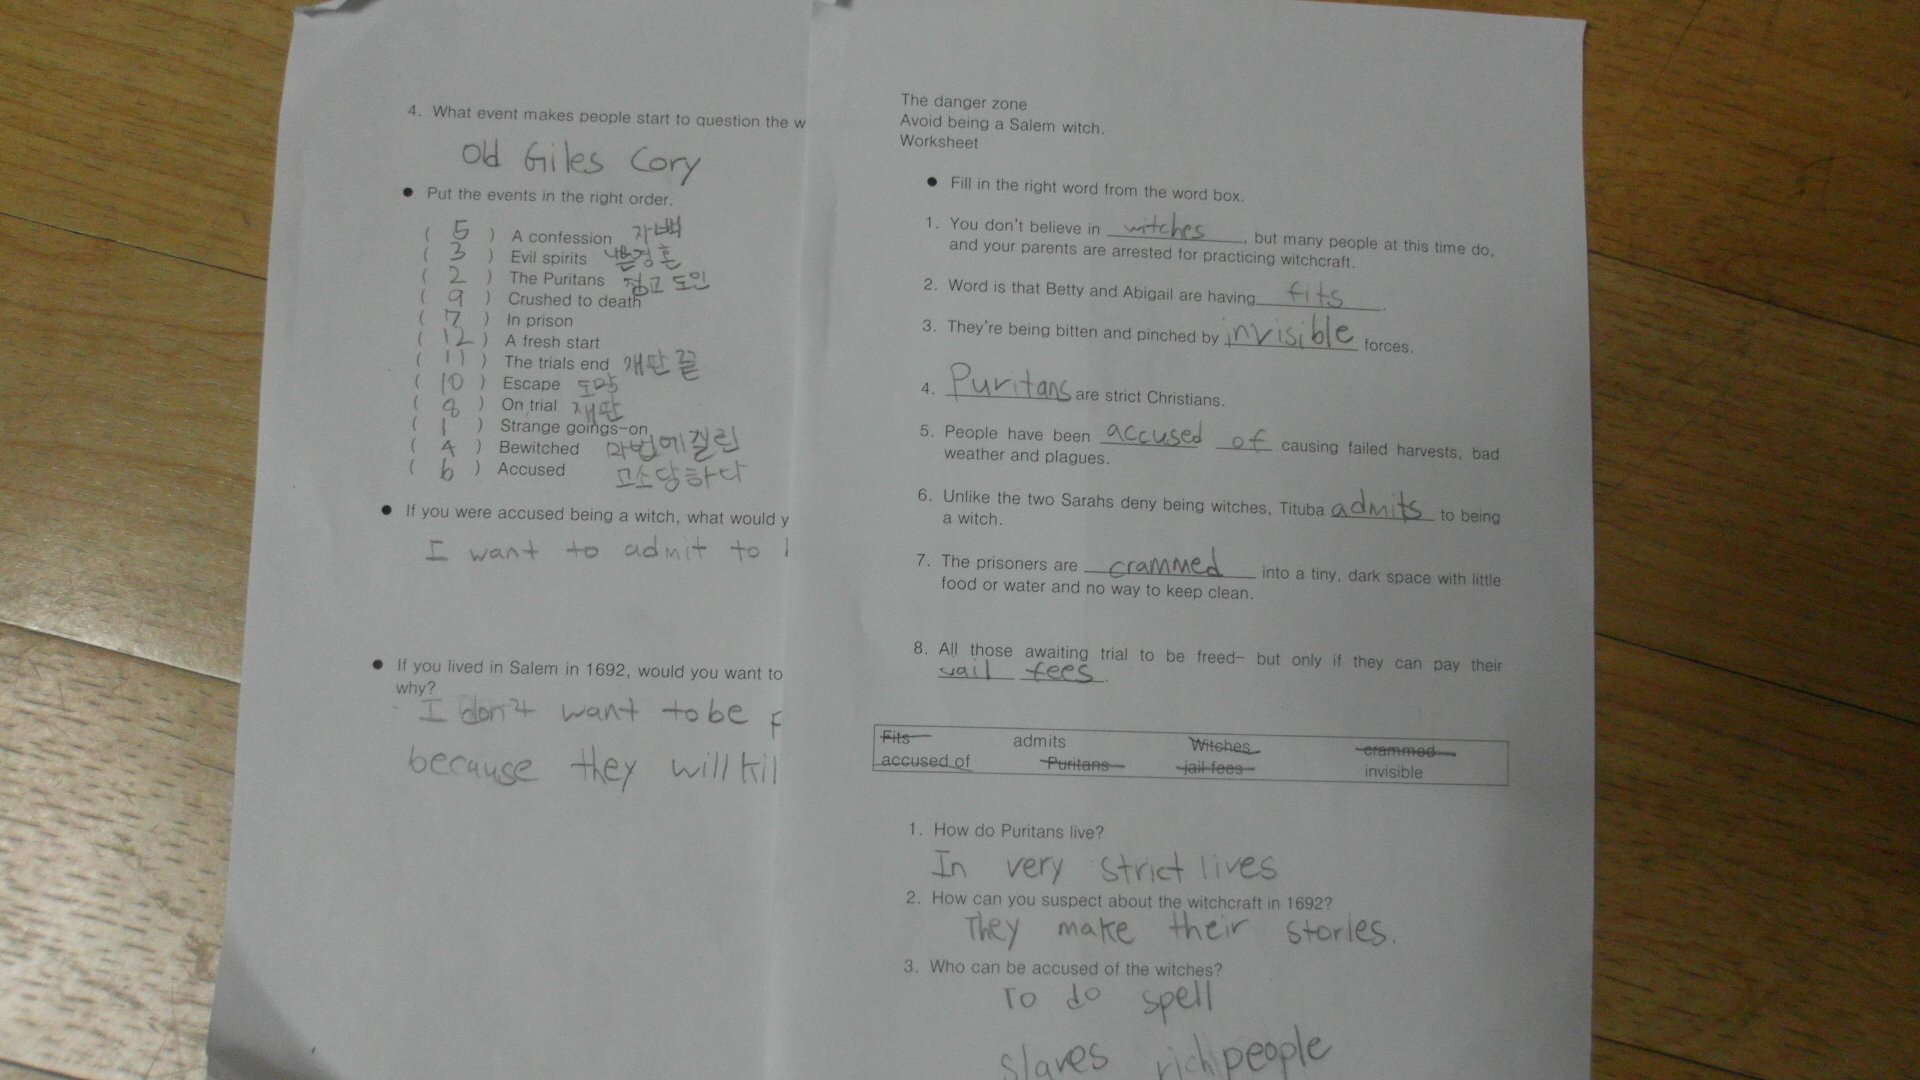 4. What event makes people start to question the w
Old Giles Cory
● Put the events in the right order.
( 5 ) A confession 자백
( 3 ) Evil spirits 나쁜영혼
( 2 ) The Puritans 청교도인
( 9 ) Crushed to death
( 7 ) In prison
( 12 ) A fresh start
( 11 ) The trials end 재판 끝
( 10 ) Escape 도망
( 8 ) On trial 재판
( 1 ) Strange goings-on
( 4 ) Bewitched 마법에 걸린
( 6 ) Accused 고소당하다
● If you were accused being a witch, what would y
I want to admit to
● If you lived in Salem in 1692, would you want to
why?
I don't want to be
because they will kil
The danger zone
Avoid being a Salem witch.
Worksheet
● Fill in the right word from the word box.
1. You don't believe in witches, but many people at this time do,
and your parents are arrested for practicing witchcraft.
2. Word is that Betty and Abigail are having fits.
3. They're being bitten and pinched by invisible forces.
4. Puritans are strict Christians.
5. People have been accused of causing failed harvests, bad
weather and plagues.
6. Unlike the two Sarahs deny being witches, Tituba admits to being
a witch.
7. The prisoners are crammed into a tiny, dark space with little
food or water and no way to keep clean.
8. All those awaiting trial to be freed- but only if they can pay their
jail fees.
Fits admits Witches crammed
accused of Puritans jail fees invisible
1. How do Puritans live?
In very strict lives
2. How can you suspect about the witchcraft in 1692?
They make their stories.
3. Who can be accused of the witches?
To do spell
slaves rich people